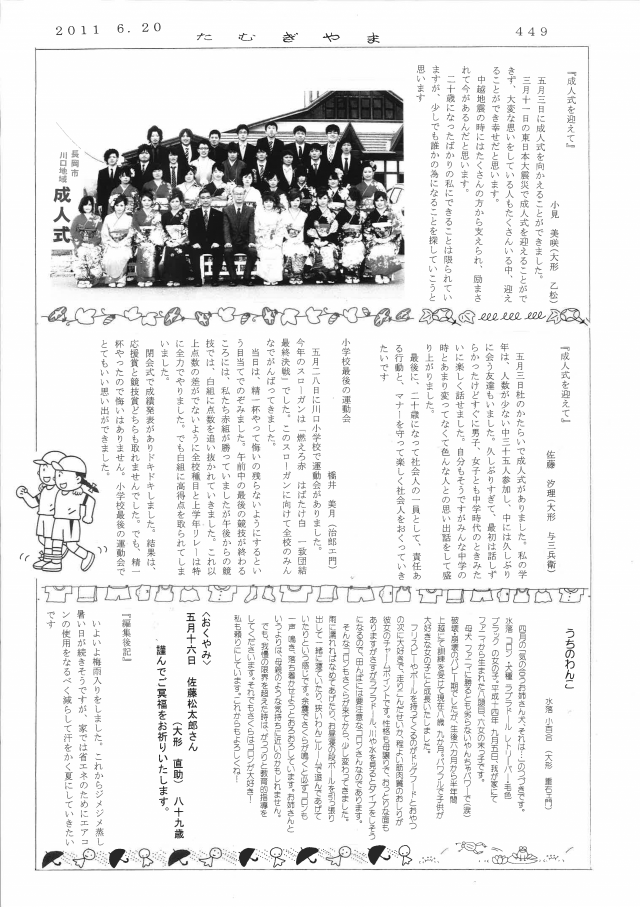 2011 6.20
たむぎやま
449
『成人式を迎えて』
小見 美咲(大形 乙松)
五月三日に成人式を向かえることができました。
三月十一日の東日本大震災で成人式を迎えることがで
きず、大変な思いをしている人もたくさんいる中、迎え
ることができ幸せだと思います。
中越地震の時にはたくさんの方から支えられ、励まさ
れて今があるんだと思います。
二十歳になったばかりの私にできることは限られてい
ますが、少しでも誰かの為になることを探していこうと
思います
長岡市
川口地域
成人式
『成人式を迎えて』
佐藤 汐理(大形 与三兵衛)
五月三日杜のかたらいで成人式がありました。私の学
年は、人数が少ない中三十五人参加し、中には久しぶり
に会う友達もいました。久しぶりすぎて、最初は話しず
らかったけどすぐに男子、女子とも中学時代のときみた
いに楽しく話せました。自分もそうですがみんな中学の
時とあまり変ってなくて色んな人との思い出話をして盛
り上がりました。
最後に、二十歳になって社会人の一員として、責任あ
る行動と、マナーを守って楽しく社会人をおくっていき
たいです
小学校最後の運動会
橋井 美月(治郎エ門)
五月二八日に川口小学校で運動会がありました。
今年のスローガンは「燃えろ赤 はばたけ白 一致団結
最終決戦」でした。このスローガンに向けて全校のみん
なでがんばってきました。
当日は、精一杯やって悔いの残らないようにするとい
う目当てでのぞみました。午前中の最後の競技が終わる
ころには、私たち赤組が勝っていましたが午後からの競
技では、白組に点数を追い抜かれていきました。これ以
上点数の差がでないように全校種目と上学年リレーは特
に全力でやりました。でも白組に高得点を取られてしま
いました。
閉会式で成績発表がありドキドキしました。結果は、
応援賞と競技賞どちらも取れませんでした。でも、精一
杯やったので悔いはありません。小学校最後の運動会で
とてもいい思い出ができました。
うちのわんこ
水落 小百合 (大形 重右エ門)
四月の「気の合うお姉さん犬、それは…」のつづきです。
水落 コロン・犬種 ラブラドール レトリーバー・毛色
ブラック の女の子。平成十四年 九月五日、我が家にて
ファニマから生まれた八頭目、六女の末っ子です。
母犬 ファニマに勝るとも劣らないやんちゃパワーで(涙)
破壊・崩壊のパピー期でしたが、生後六カ月から半年間
上越にて訓練を受けて現在八歳 九か月。パワフルで子供が
大好きな女の子にと成長いたしました。
フリスビーやボールを持ってくるのがドッグフードとおやつ
の次に大好きで、走りこんだせいか、程よい筋肉質のおしりが
彼女のチャームポイントです。性格も母譲りで、おっとりな面も
ありますがさすがラブラドール、川や水を見るとダイブをしそう
になるので、田んぼどきには要注意なコロンさんなのであります。
そんなコロンもさくらが来てから、少し変わってきました。
雨に濡れればなめてあげたり、お昼寝の段ボールを引っ張り
出して一緒に寝ていたり、狭いわんこルームで遊んであげて
いたりという感じです。余震でさくらが鳴くと必ずコロンも
一声 鳴き、落ち着かせようとおろおろしています。お姉さんと
いうよりは、母親のような気持ちに近いのかもしれません。
でも、我慢の限界を超えた時は、がっつりと教育的指導を
してくださいます。それでもさくらはコロンが大好き!
私も頼りにしています。これからもよろしくね!
〈おくやみ〉
五月十六日 佐藤松太郎さん
(大形 直助) 八十九歳
謹んでご冥福をお祈りいたします。
『編集後記』
いよいよ梅雨入りをしました。これからジメジメ蒸し
暑い日が続きそうですが、家では省エネのためにエアコ
ンの使用をなるべく減らして汗をかく夏にしていきたい
です